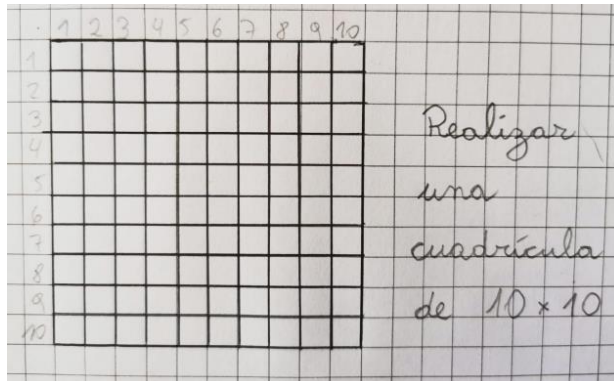 . 1 2 3 4 5 6 7 8 9 10
1
2
3
4
5
6
7
8
9
10
Realizar
una
cuadrícula
de 10 x 10